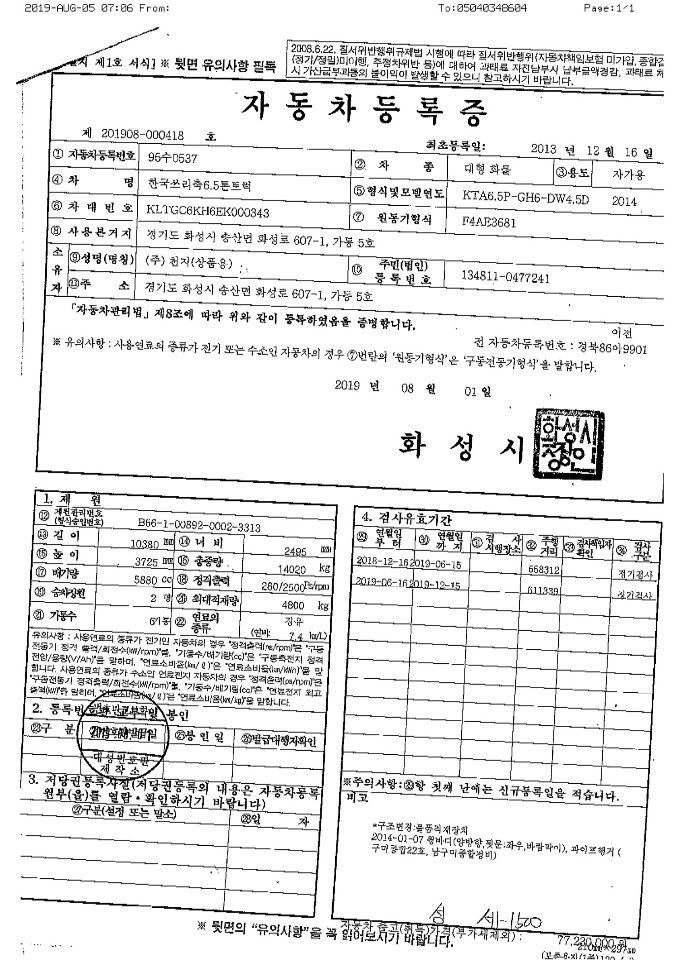 2019-AUG-05 07:06 From: To:05040348604 Page:1/1
제1호 서식] ※ 뒷면 유의사항 필독
2008.6.22. 질서위반행위규제법 시행에 따라 질서위반행위(자동차책임보험 미가입, 종합검
(정기/정밀)미이행, 주정차위반 등)에 대하여 과태료 자진납부시 납부금액경감, 과태료 체
시 가산금부과등의 불이익이 발생할 수 있으니 참고하시기 바랍니다.
자동차등록증
제 201908-000418 호
최초등록일: 2013 년 12 월 16 일
① 자동차등록번호 95수0537 ② 차 종 대형 화물 ③용도 자가용
④ 차 명 한국쓰리축6.5톤트럭 ⑤형식및모델연도 KTA6.5P-GH6-DW4.5D 2014
⑥ 차 대 번 호 KLTGC6KH6EK000343 ⑦ 원동기형식 F4AE3681
⑧ 사용본거지 경기도 화성시 송산면 화성로 607-1, 가동 5호
소유자
⑨성명(명칭) (주) 천지(상품용) ⑩ 주민(법인)등록번호 134811-0477241
⑪주 소 경기도 화성시 송산면 화성로 607-1, 가동 5호
「자동차관리법」제8조에 따라 위와 같이 등록하였음을 증명합니다.
이전
전 자동차등록번호 : 경북86아9901
※ 유의사항 : 사용연료의 종류가 전기 또는 수소인 자동차의 경우 ⑦번란의 '원동기형식'은 '구동전동기형식'을 말합니다.
2019 년 08 월 01 일
화 성 시
화성시장인
1. 제 원
⑫ 제원관리번호(형식승인번호) B66-1-00892-0002-3313
⑬ 길 이 10380 mm ⑭ 너 비 2495 mm
⑮ 높 이 3725 mm ⑯ 총중량 14020 kg
⑰ 배기량 5880 cc ⑱ 정격출력 280/2500 ps/rpm
⑲ 승차정원 2 명 ⑳ 최대적재량 4800 kg
㉑ 기통수 6기통 ㉒ 연료의 종류 경유 (연비: 7.4 km/L)
유의사항 : 사용연료의 종류가 전기인 자동차의 경우 "정격출력(ps/rpm)"은 "구동
전동기 정격 출력/회전수(kW/rpm)"을, "기통수/배기량(cc)"은 "구동축전지 정격
전압/용량(V/Ah)"을 말하며, "연료소비율(km/ℓ)"은 "연료소비율(km/kWh)"을 말
합니다. 사용연료의 종류가 수소인 연료전지 자동차의 경우 "정격출력(ps/rpm)"은
"구동전동기 정격출력/회전수(kW/rpm)"을, "기통수/배기량(cc)"은 "연료전지 최고
출력(kW)"을 말하며, "연료소비율(km/ℓ)"은 "연료소비율(km/kg)"을 말합니다.
2. 등록번호판 교부 및 봉인
㉓구 분 ㉕봉 인 일 ㉖발급대행자확인
대성번호판
제작소
3. 저당권등록사실(저당권등록의 내용은 자동차등록
원부(을)를 열람・확인하시기 바랍니다)
㉗구분(설정 또는 말소) ㉘일 자
4. 검사유효기간
연월일부터 연월일까지 검사시행장소 주행거리 검사책임자확인 검사구분
2018-12-16 2019-06-15 558312 정기검사
2019-06-16 2019-12-15 611339 정기검사
※주의사항:㉙항 첫째 난에는 신규등록일을 적습니다.
비고
*구조변경:물품적재장치
2014-01-07 윙바디(양방향,뒷문:좌우,바람막이), 파이프행거 (
구미종합22호, 남구미종합정비)
세-1500
자동차 출고(취득)가격(부가세제외) : 77,230,000 원
※ 뒷면의 "유의사항"을 꼭 읽어보시기 바랍니다.